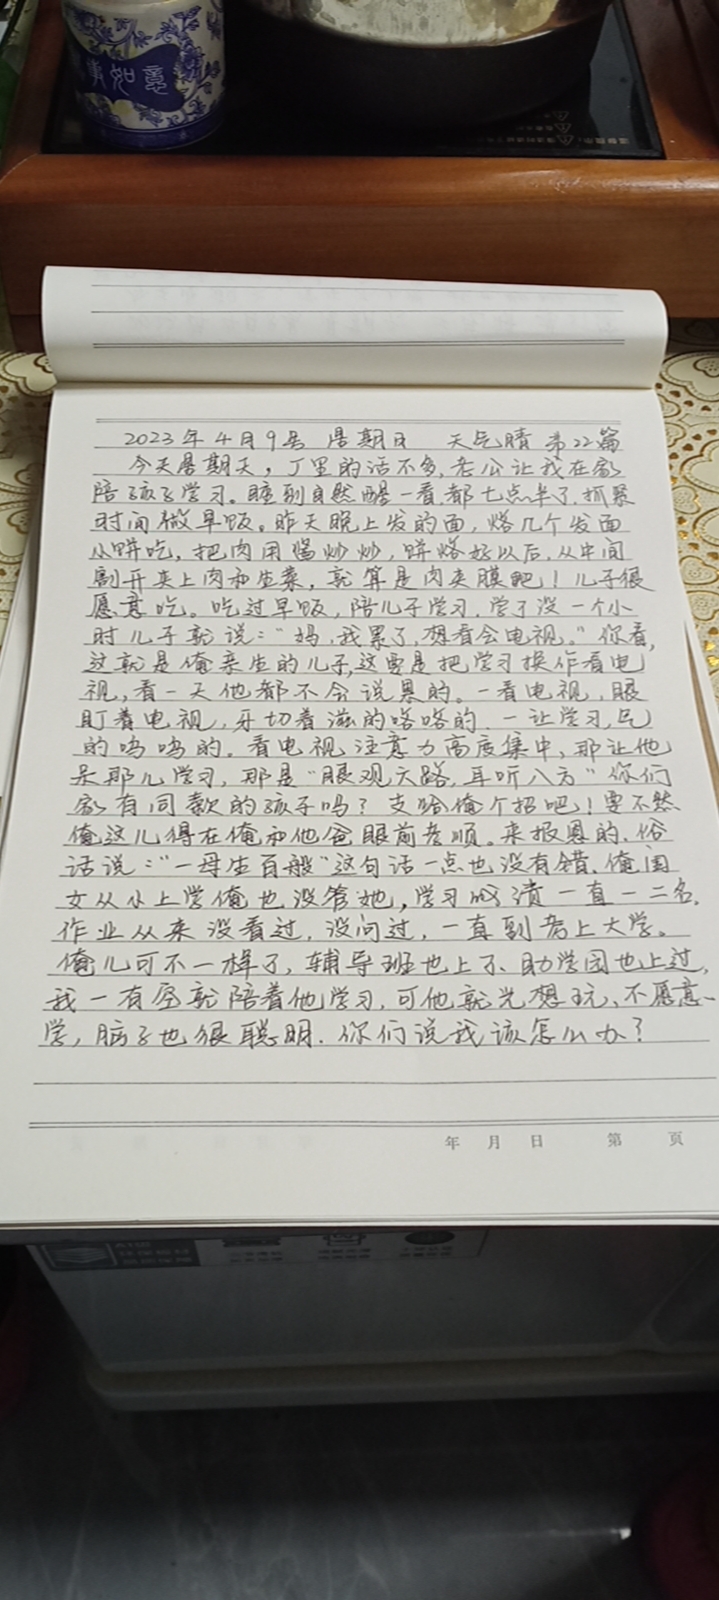 事如意
2023年4月9号 星期日 天气晴 第22篇
今天星期天，厂里的活不多，老公让我在家
陪孩子学习。睡到自然醒一看，都七点半了，抓紧
时间做早饭。昨天晚上发的面，烙几个发面
小饼吃，把肉用酱炒炒，饼烙好以后，从中间
割开夹上肉和生菜，就算是肉夹膜吧！儿子很
愿意吃。吃过早饭，陪儿子学习，学了没一个小
时儿子就说：“妈，我累了，想看会电视。”你看，
这就是俺亲生的儿子，这要是把学习操作看电
视，看一天他都不会说累的。一看电视，眼
盯着电视，牙切着滋的嗒嗒的，一让学习，气
的呜呜的。看电视注意力高度集中，那让他
呆那儿学习，那是“眼观六路，耳听八方”你们
家有同款的孩子吗？支给俺个招吧！要不然
俺这儿得在俺和他爸眼前孝顺。来报恩的，俗
话说：“一母生百般”这句话一点也没有错，俺闺
女从小上学俺也没管她，学习成绩一直一二名，
作业从来没看过，没问过，一直到考上大学。
俺儿可不一样了，辅导班也上了、助学园也上过，
我一有空就陪着他学习，可他就光想玩，不愿意
学，脑子也很聪明，你们说我该怎么办？
年 月 日 第 頁